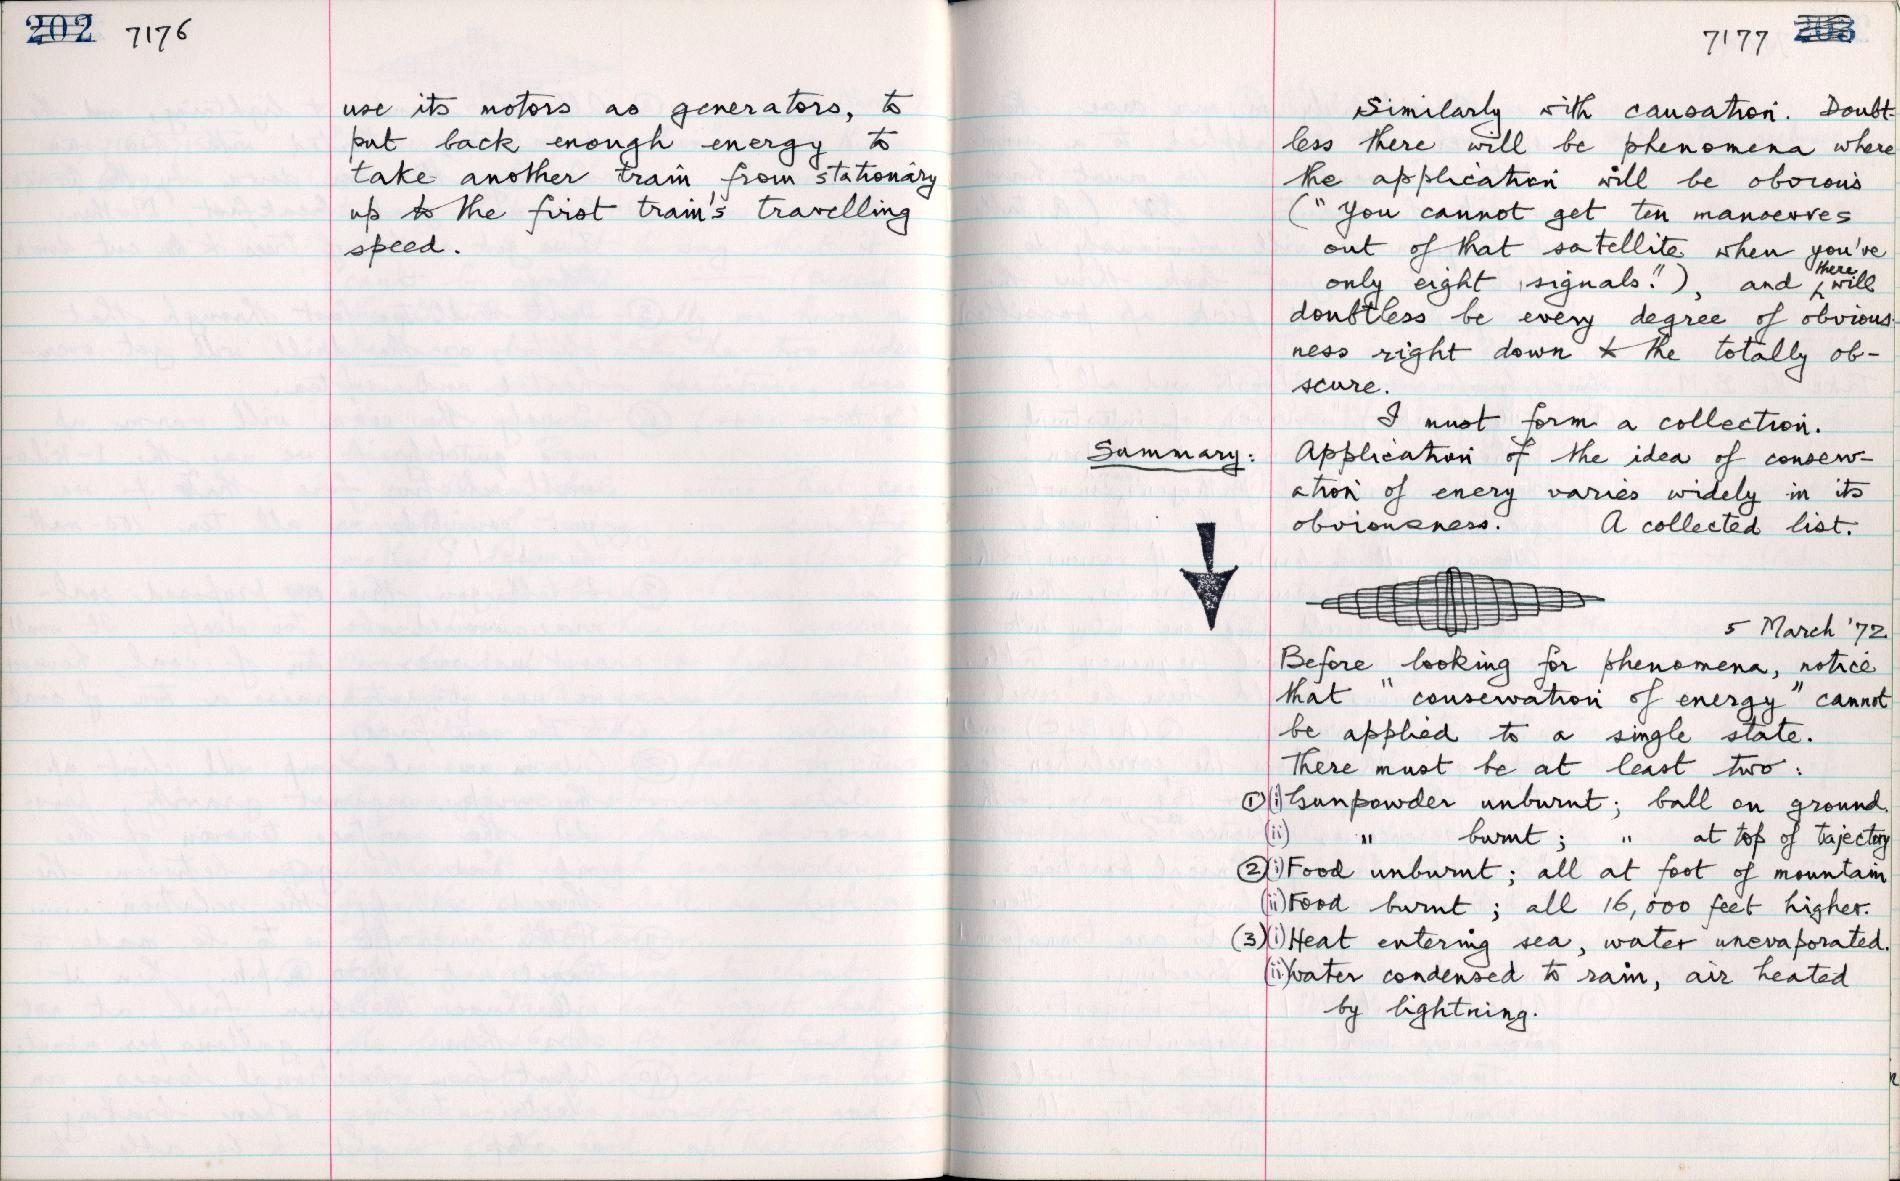 202 7176
use its motors as generators, to
put back enough energy to
take another train from stationary
up to the first train's travelling
speed.
7177 203
Similarly with causation. Doubt-
less there will be phenomena where
the application will be obvious
("You cannot get ten manoevres
out of that satellite when you've
only eight signals."), and there will
doubtless be every degree of obvious-
ness right down to the totally ob-
scure.
I must form a collection.
Summary: Application of the idea of conserv-
ation of enery varies widely in its
obviousness. A collected list.
5 March '72
Before looking for phenomena, notice
that "conservation of energy" cannot
be applied to a single state.
There must be at least two:
① (i) Gunpowder unburnt; ball on ground.
(ii) " burnt; " at top of trajectory
② (i) Food unburnt; all at foot of mountain
(ii) Food burnt; all 16,000 feet higher.
(3) (i) Heat entering sea, water unevaporated.
(ii) Water condensed to rain, air heated
by lightning.